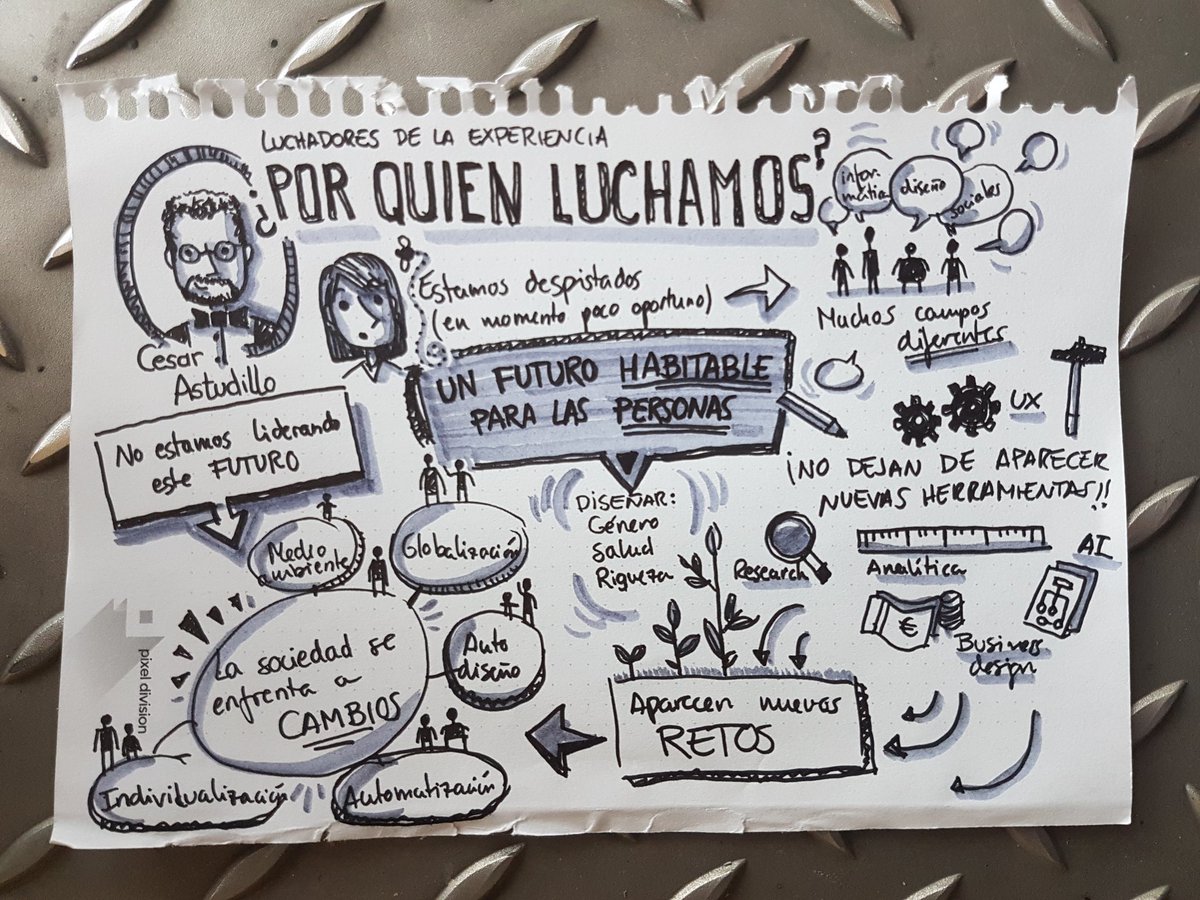 LUCHADORES DE LA EXPERIENCIA
¿POR QUIEN LUCHAMOS?
Cesar
Astudillo
Estamos despistados
(en momento poco oportuno)
infor-
mática
diseño
sociales
Muchos campos
diferentes
UN FUTURO HABITABLE
PARA LAS PERSONAS
No estamos liderando
este FUTURO
UX
¡NO DEJAN DE APARECER
NUEVAS HERRAMIENTAS!!
DISEÑAR:
Género
Salud
Riqueza
Research
Analítica
AI
€
Business
design
Medio
ambiente
Globalización
Auto
diseño
La sociedad se
enfrenta a
CAMBIOS
Individualización
Automatización
Aparecen nuevos
RETOS
pixel division